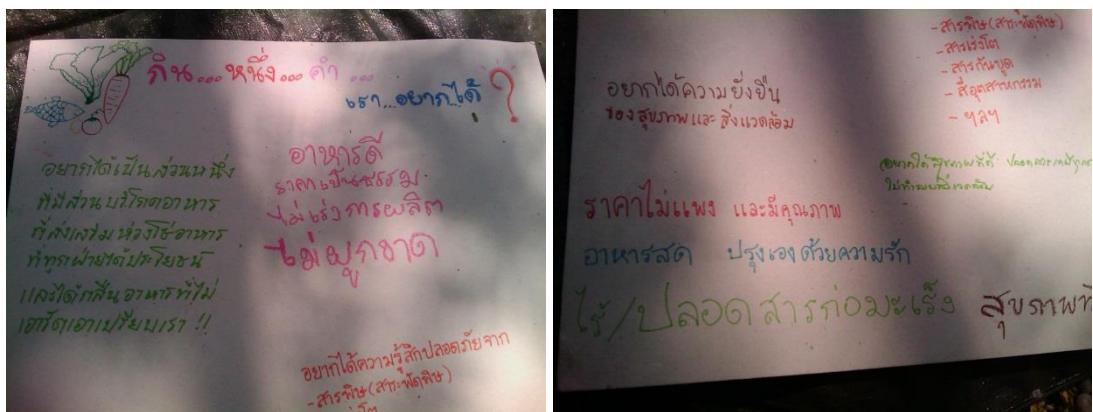 กิน...หนึ่ง...คำ...
เรา...อยากได้?
อยากได้เป็นส่วนหนึ่ง
ที่มีส่วนบริโภคอาหาร
ที่ส่งเสริมห่วงโซ่อาหาร
ที่ทุกฝ่ายได้ประโยชน์
และได้กลืนอาหารที่ไม่
เอารัดเอาเปรียบเรา !!
อาหารดี
ราคาเป็นธรรม
ไม่เร่งการผลิต
ไม่ผูกขาด
อยากได้ความรู้สึกปลอดภัยจาก
-สารพิษ(สารพัดพิษ)
-สารพิษ(สารพัดพิษ)
-สารเร่งโต
-สารกันบูด
-สีอุตสาหกรรม
-ฯลฯ
อยากได้ความยั่งยืน
ของสุขภาพและสิ่งแวดล้อม
อยากได้สุขภาพที่ดี ปลอด
ราคาไม่แพง และมีคุณภาพ
อาหารสด ปรุงเองด้วยความรัก
ไร้/ปลอดสารก่อมะเร็ง สุขภาพ